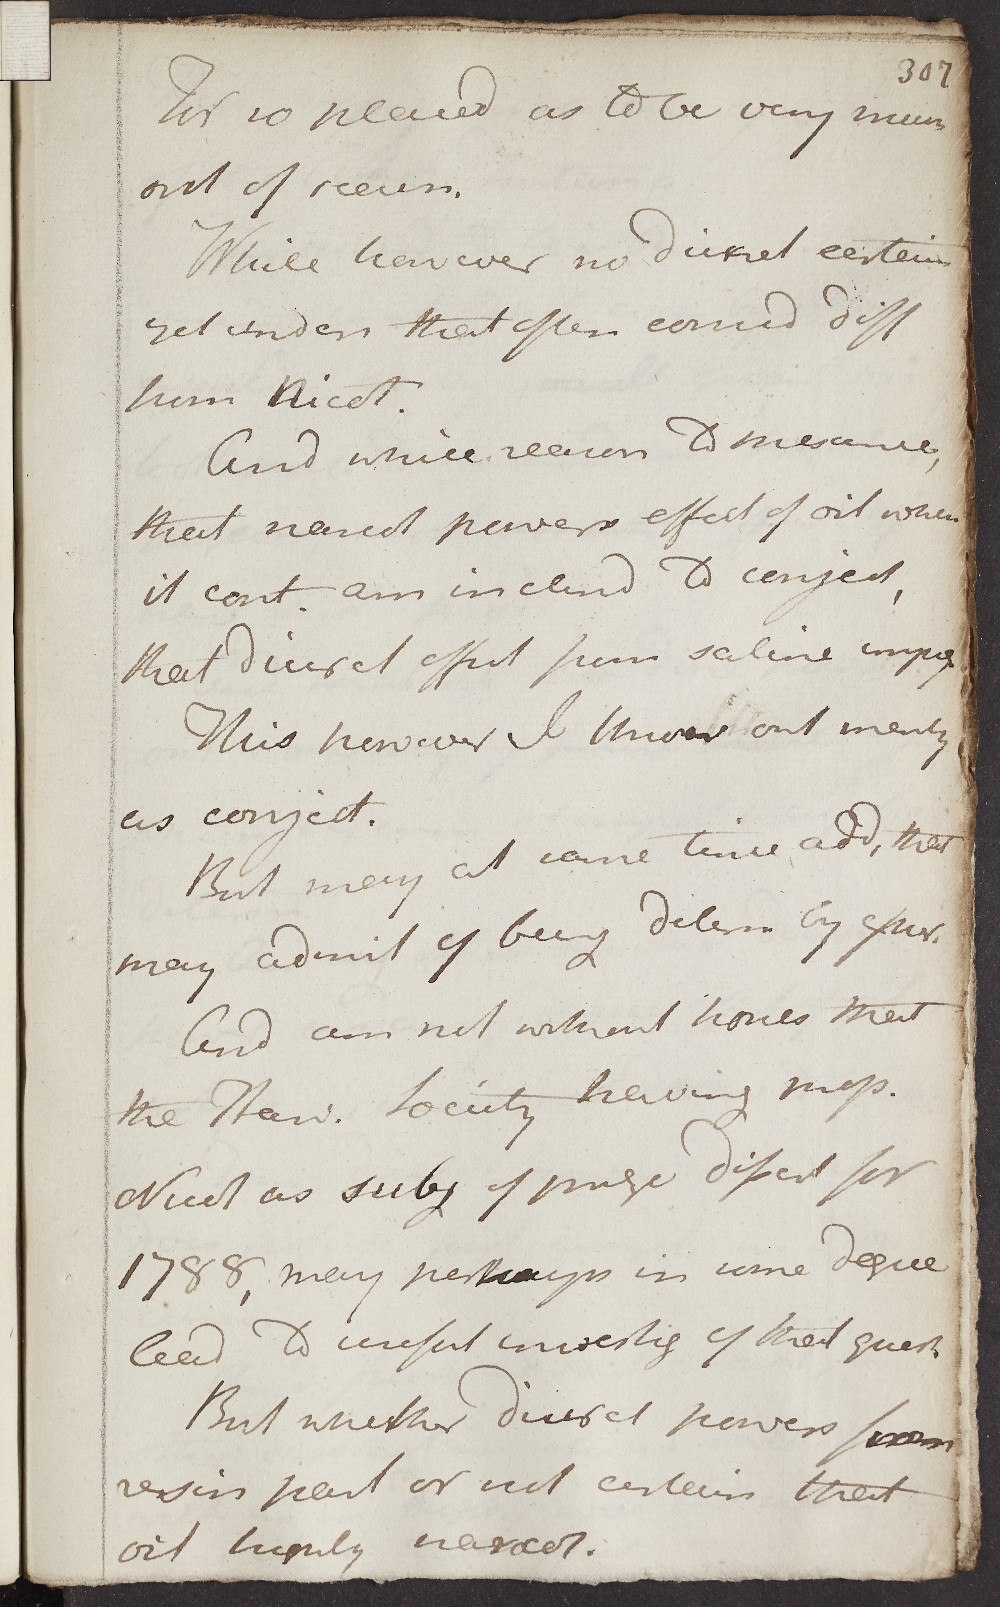 307
For so placed as to be very much
out of reach.
While however no diuret certain
yet under that often comd diff
from Nicot.
And while reason to presume,
that narcot powers effect of oil when
it cont. am inclind to conject,
that diuret effect from saline impreg
This however I throw out merely
as conject.
But may at same time add, that
may admit of being determ by exper.
And am not without hopes that
the Harv. Society having prop.
Nicot as subj of prize dissert for
1788, may perhaps in some degree
lead to useful investig of that quest.
But whether diuret powers from
resin part or not certain that
oil highly narcot.